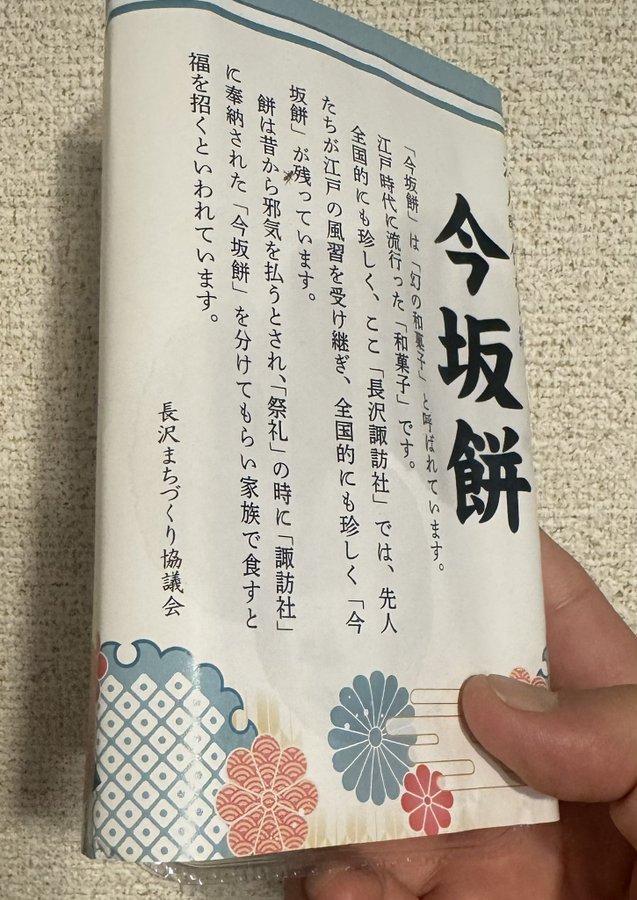 今坂餅
「今坂餅」は「幻の和菓子」と呼ばれています。
江戸時代に流行った「和菓子」です。
全国的にも珍しく、ここ「長沢諏訪社」では、先人
たちが江戸の風習を受け継ぎ、全国的にも珍しく「今
坂餅」が残っています。
餅は昔から邪気を払うとされ、「祭礼」の時に「諏訪社」
に奉納された「今坂餅」を分けてもらい家族で食すと
福を招くといわれています。
長沢まちづくり協議会